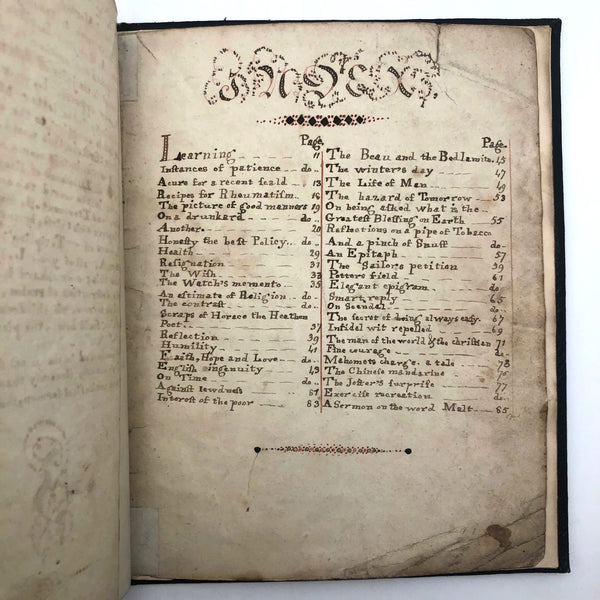 INDEX
Page
Learning 11
Instances of patience do..
A cure for a recent scald 13
Recipes for Rheumatism.. 16
The picture of good manners 19
On a drunkard do..
Another. 20
Honesty the beſt Policy.. do..
Health 29
Resignation 31
The Wish 33
The Watch's memento.. 35
An estimate of Religion.. do..
The contraſt do..
Scraps of Horace the Heathen
Poet.. 37
Reflection 39
Humility 41
Faith, Hope and Love do..
English ingenuity 43
On Time do..
Against lewdness 81
Interest of the poor 83
Page.
The Beau and the Bedlamite. 45
The winter's day 47
The Life of Man 49
The hazard of Tomorrow 53
On being asked what is the..
Greatest Bleſsing on Earth 55
Reflections on a pipe of Tobacco
And a pinch of Snuff do..
An Epitaph 57
The Sailors petition 59
Potters field 61
Elegant epigram do..
Smart reply 65
On Scendel do..
The secret of being always easy. 67
Infidel wit repelled 69
The man of the world & the christian 71
Fine courage do..
Mahomets charge. a tale 73
The Chinese mandarine 75
The Jester's surprise 77
Exercise recreation do..
A Sermon on the word Malt 85